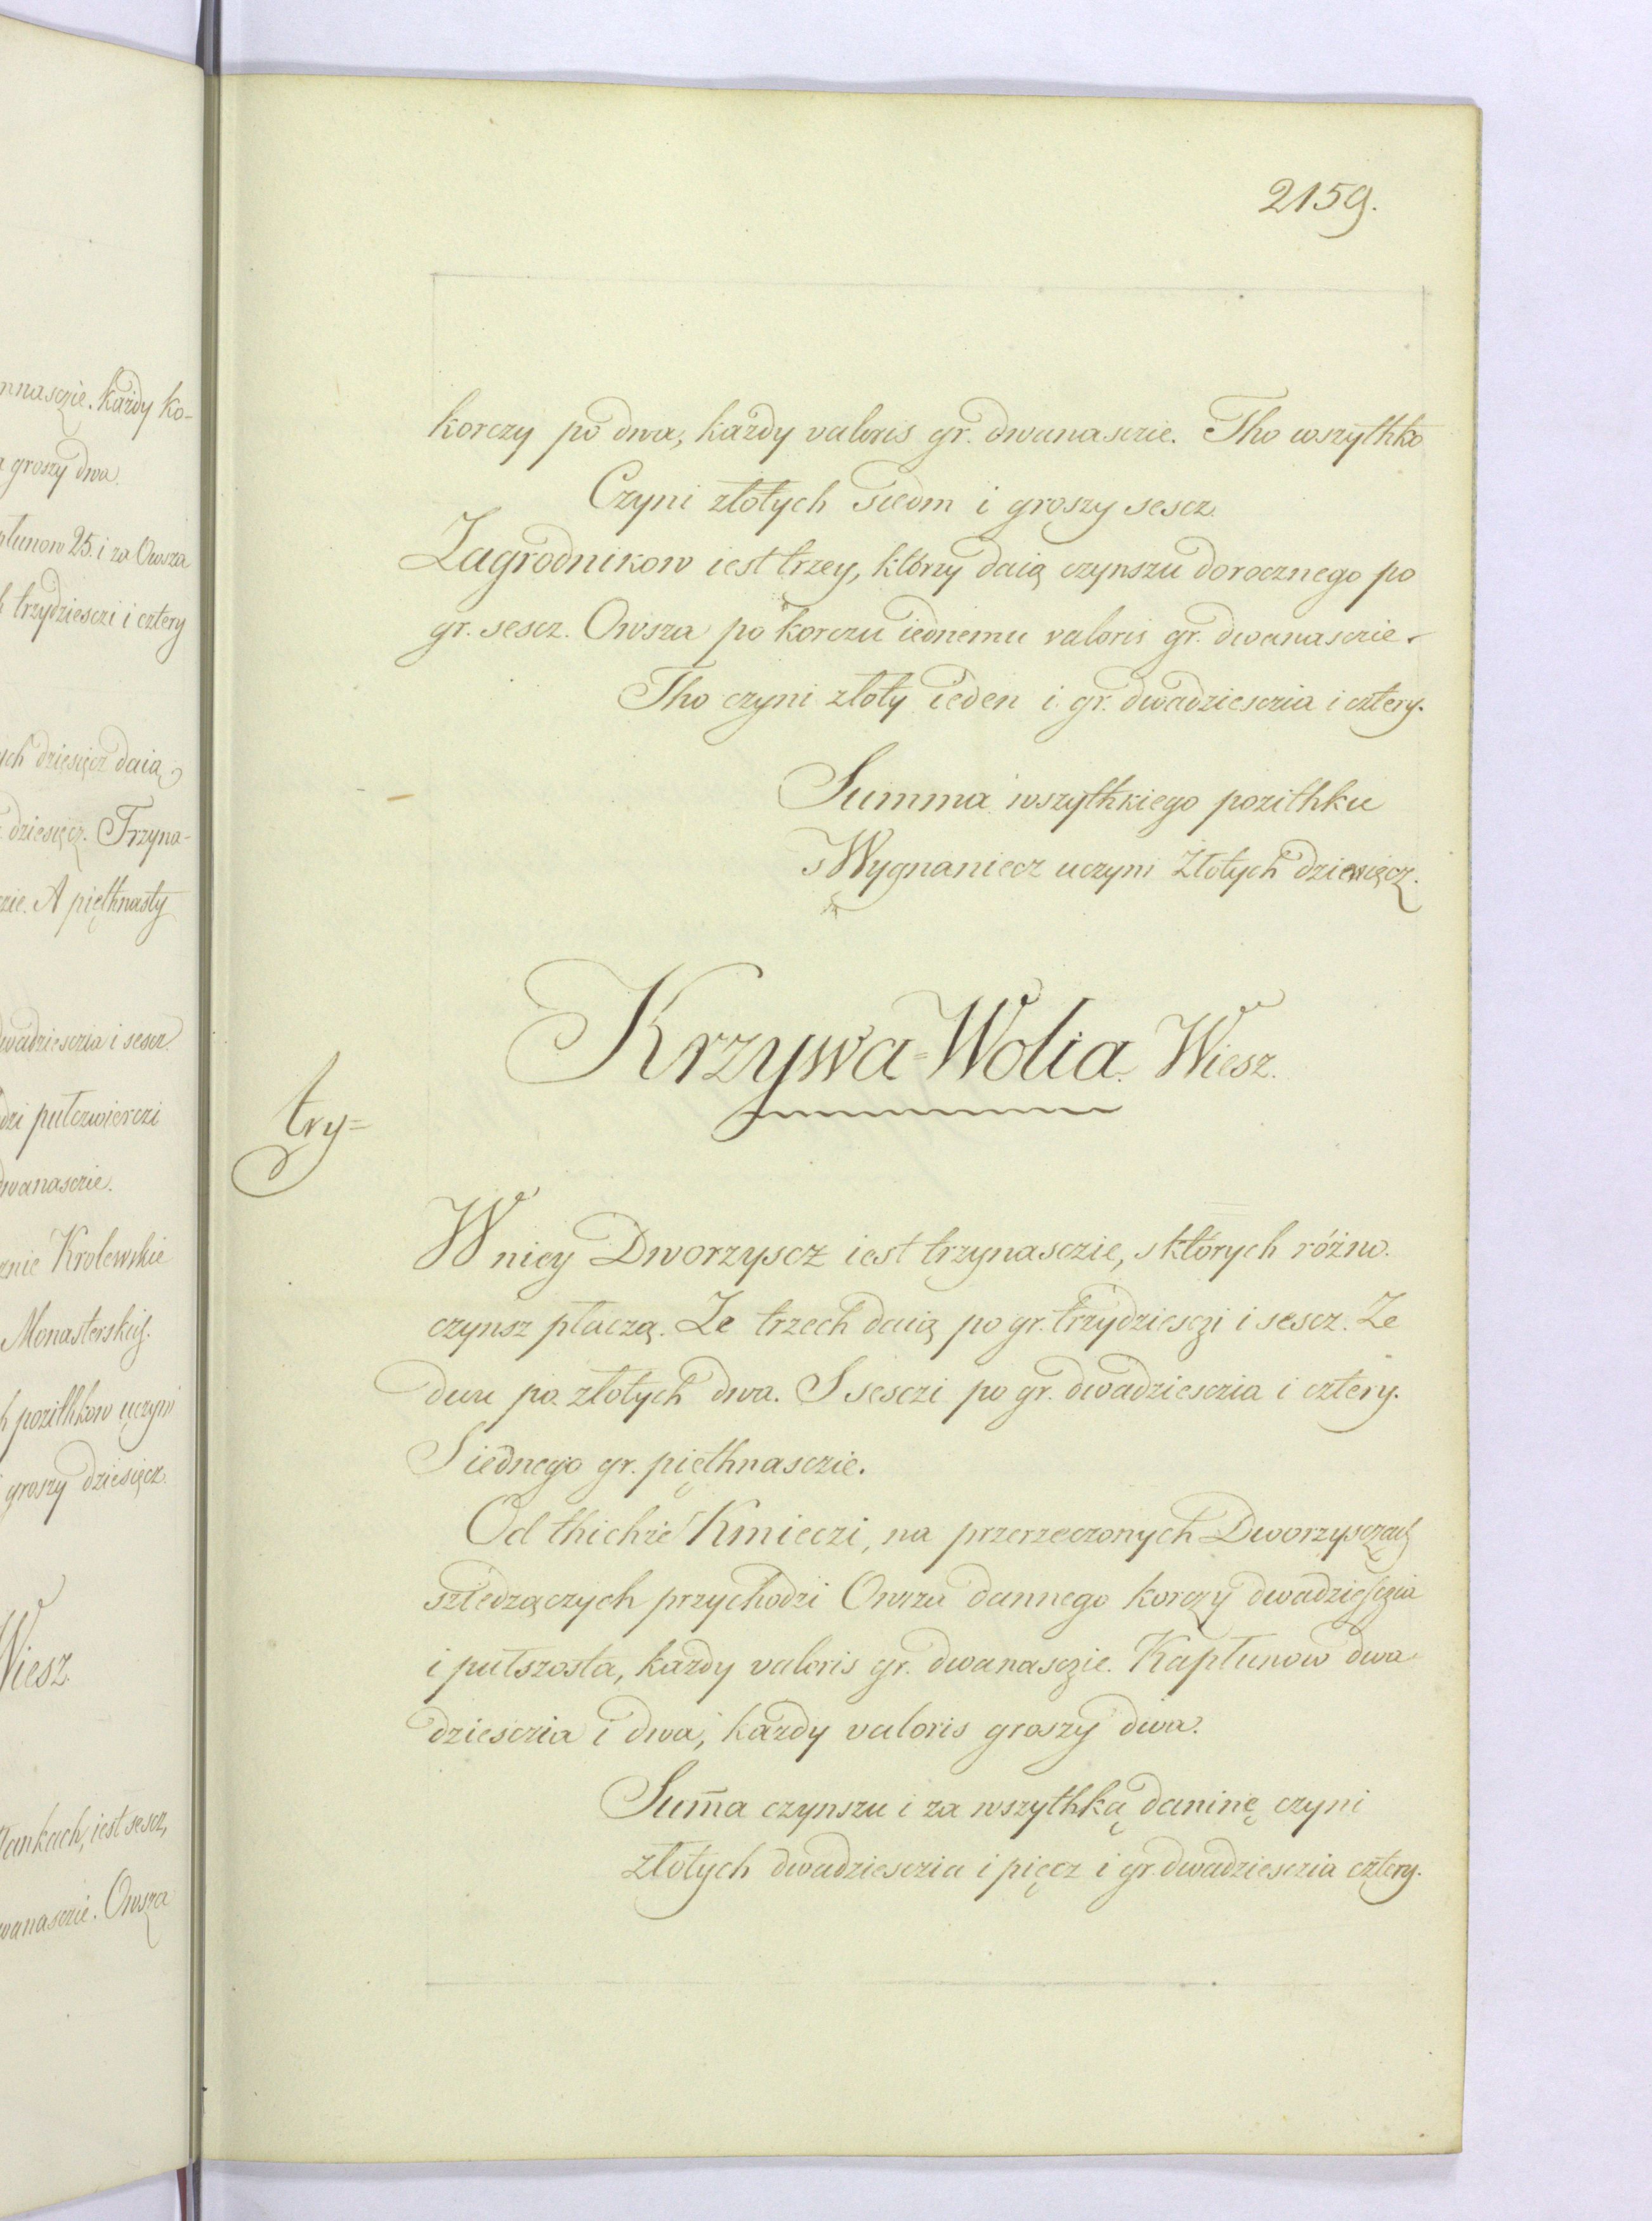 nnasczie. każdy ko-
groszy dwa.
płunow 25. i za Owsza
trzydziesczi i cztery
ych dziesięcz daią
dziesięcz. Trzyna-
czie. A pięthnasty
dwadziesczia i sescz
dzi pułczwierczi
dwanasczie.
cznie Krolewskie
Monasterskiej.
pozithkow uczyni
groszy dziesięcz.
Wiesz.
łankach, iest sescz,
dwanasczie. Owsza
2159.
korczy po dwa, każdy valoris gr. dwanasczie. Tho wszythko
Czyni złotych siedm i groszy sescz.
Zagrodnikow iest trzey, którzy daią czynszu dorocznego po
gr. sescz. Owsza po korczu iednemu valoris gr. dwanasczie.
Tho czyni złoty ieden i gr. dwadziesczia i cztery.
Summa wszythkiego pozithku
s Wygnaniecz uczyni złotych dziewięcz.
Krzywa=Wolia. Wiesz.
try=
W niey Dworzyscz iest trzynasczie, s których różno.
czynsz płaczą. Ze trzech daią po gr. trzydziesczi i sescz. Ze
dwu po złotych dwa. S sesczi po gr. dwadziesczia i cztery.
S iednego gr. pięthnasczie.
Od thichże Kmieczi, na przerzeczonych Dworzysczach
sziedzączych przychodzi Owsza dannego korczy dwadziesczia
i pułszosta, każdy valoris gr. dwanasczie. Kapłunow dwa
dziesczia i dwa, każdy valoris groszy dwa.
Sum̄a czynszu i za wszythką daninę czyni
złotych dwadziesczia i pięcz i gr. dwadziesczia cztery.